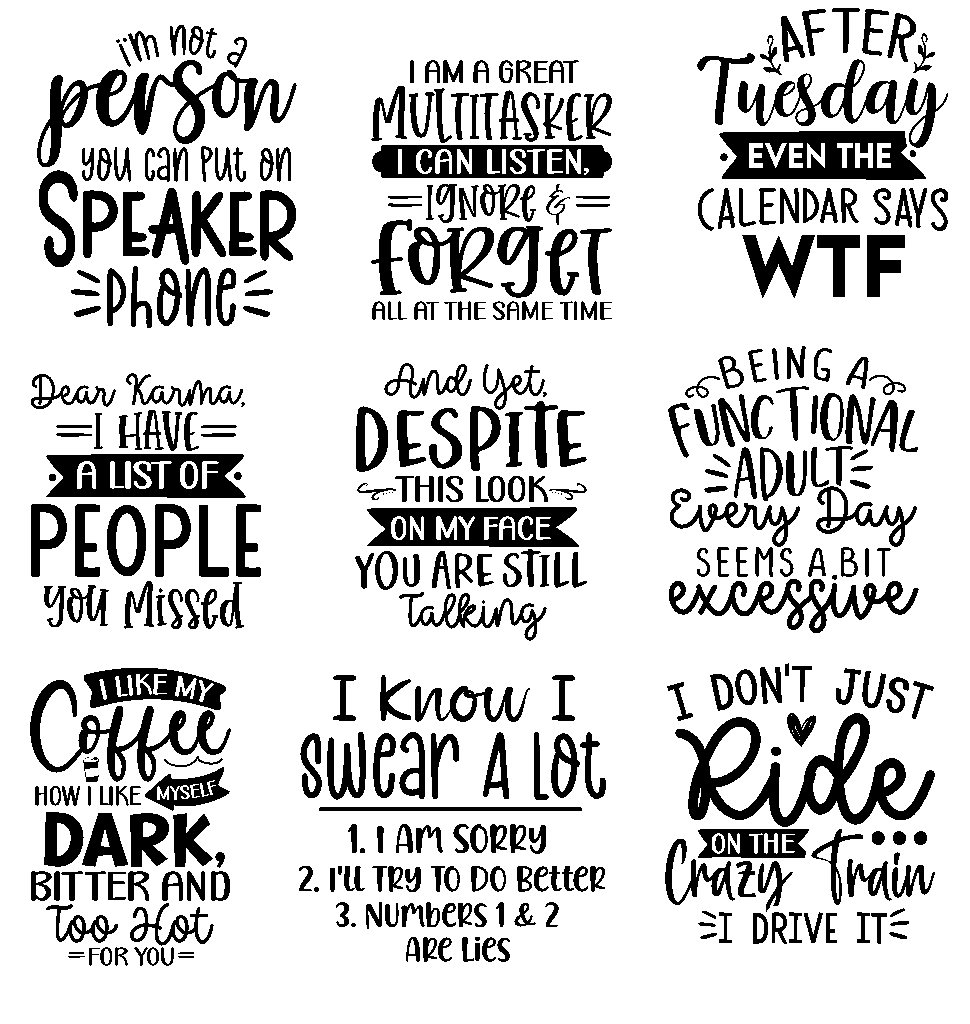 i'm not a
person
you can put on
SPEAKER
phone
I AM A GREAT
MULTITASKER
I CAN LISTEN,
IGNORE &
FORGET
ALL AT THE SAME TIME
AFTER
Tuesday
EVEN THE
CALENDAR SAYS
WTF
Dear Karma,
I HAVE
A LIST OF
PEOPLE
you Missed
And Yet,
DESPITE
THIS LOOK
ON MY FACE
YOU ARE STILL
Talking
BEING A
FUNCTIONAL
ADULT
Every Day
SEEMS A BIT
excessive
I LIKE MY
Coffee
HOW I LIKE MYSELF
DARK,
BITTER AND
Too Hot
FOR YOU
I Know I
swear A Lot
1. I AM SORRY
2. I'll TRY TO DO Better
3. Numbers 1 & 2
Are Lies
I DON'T JUST
Ride
ON THE
Crazy Train...
I DRIVE IT